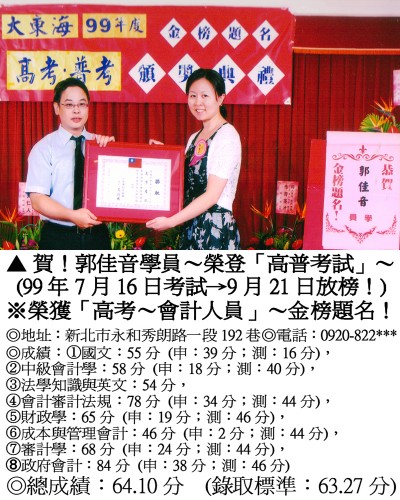 大東海 99年度 金榜題名
高考普考 頒獎典禮
恭賀
郭佳音
學員
金榜題名！
▲賀！郭佳音學員～榮登「高普考試」～
(99年7月16日考試→9月21日放榜！)
※榮獲「高考～會計人員」～金榜題名！
◎地址：新北市永和秀朗路一段192巷◎電話：0920-822***
◎成績：①國文：55分 (申：39分；測：16分)，
②中級會計學：58分 (申：18分；測：40分)，
③法學知識與英文：54分，
④會計審計法規：78分 (申：34分；測：44分)，
⑤財政學：65分 (申：19分；測：46分)，
⑥成本與管理會計：46分 (申：2分；測：44分)，
⑦審計學：68分 (申：24分；測：44分)，
⑧政府會計：84分 (申：38分；測：46分)
◎總成績：64.10分 (錄取標準：63.27分)